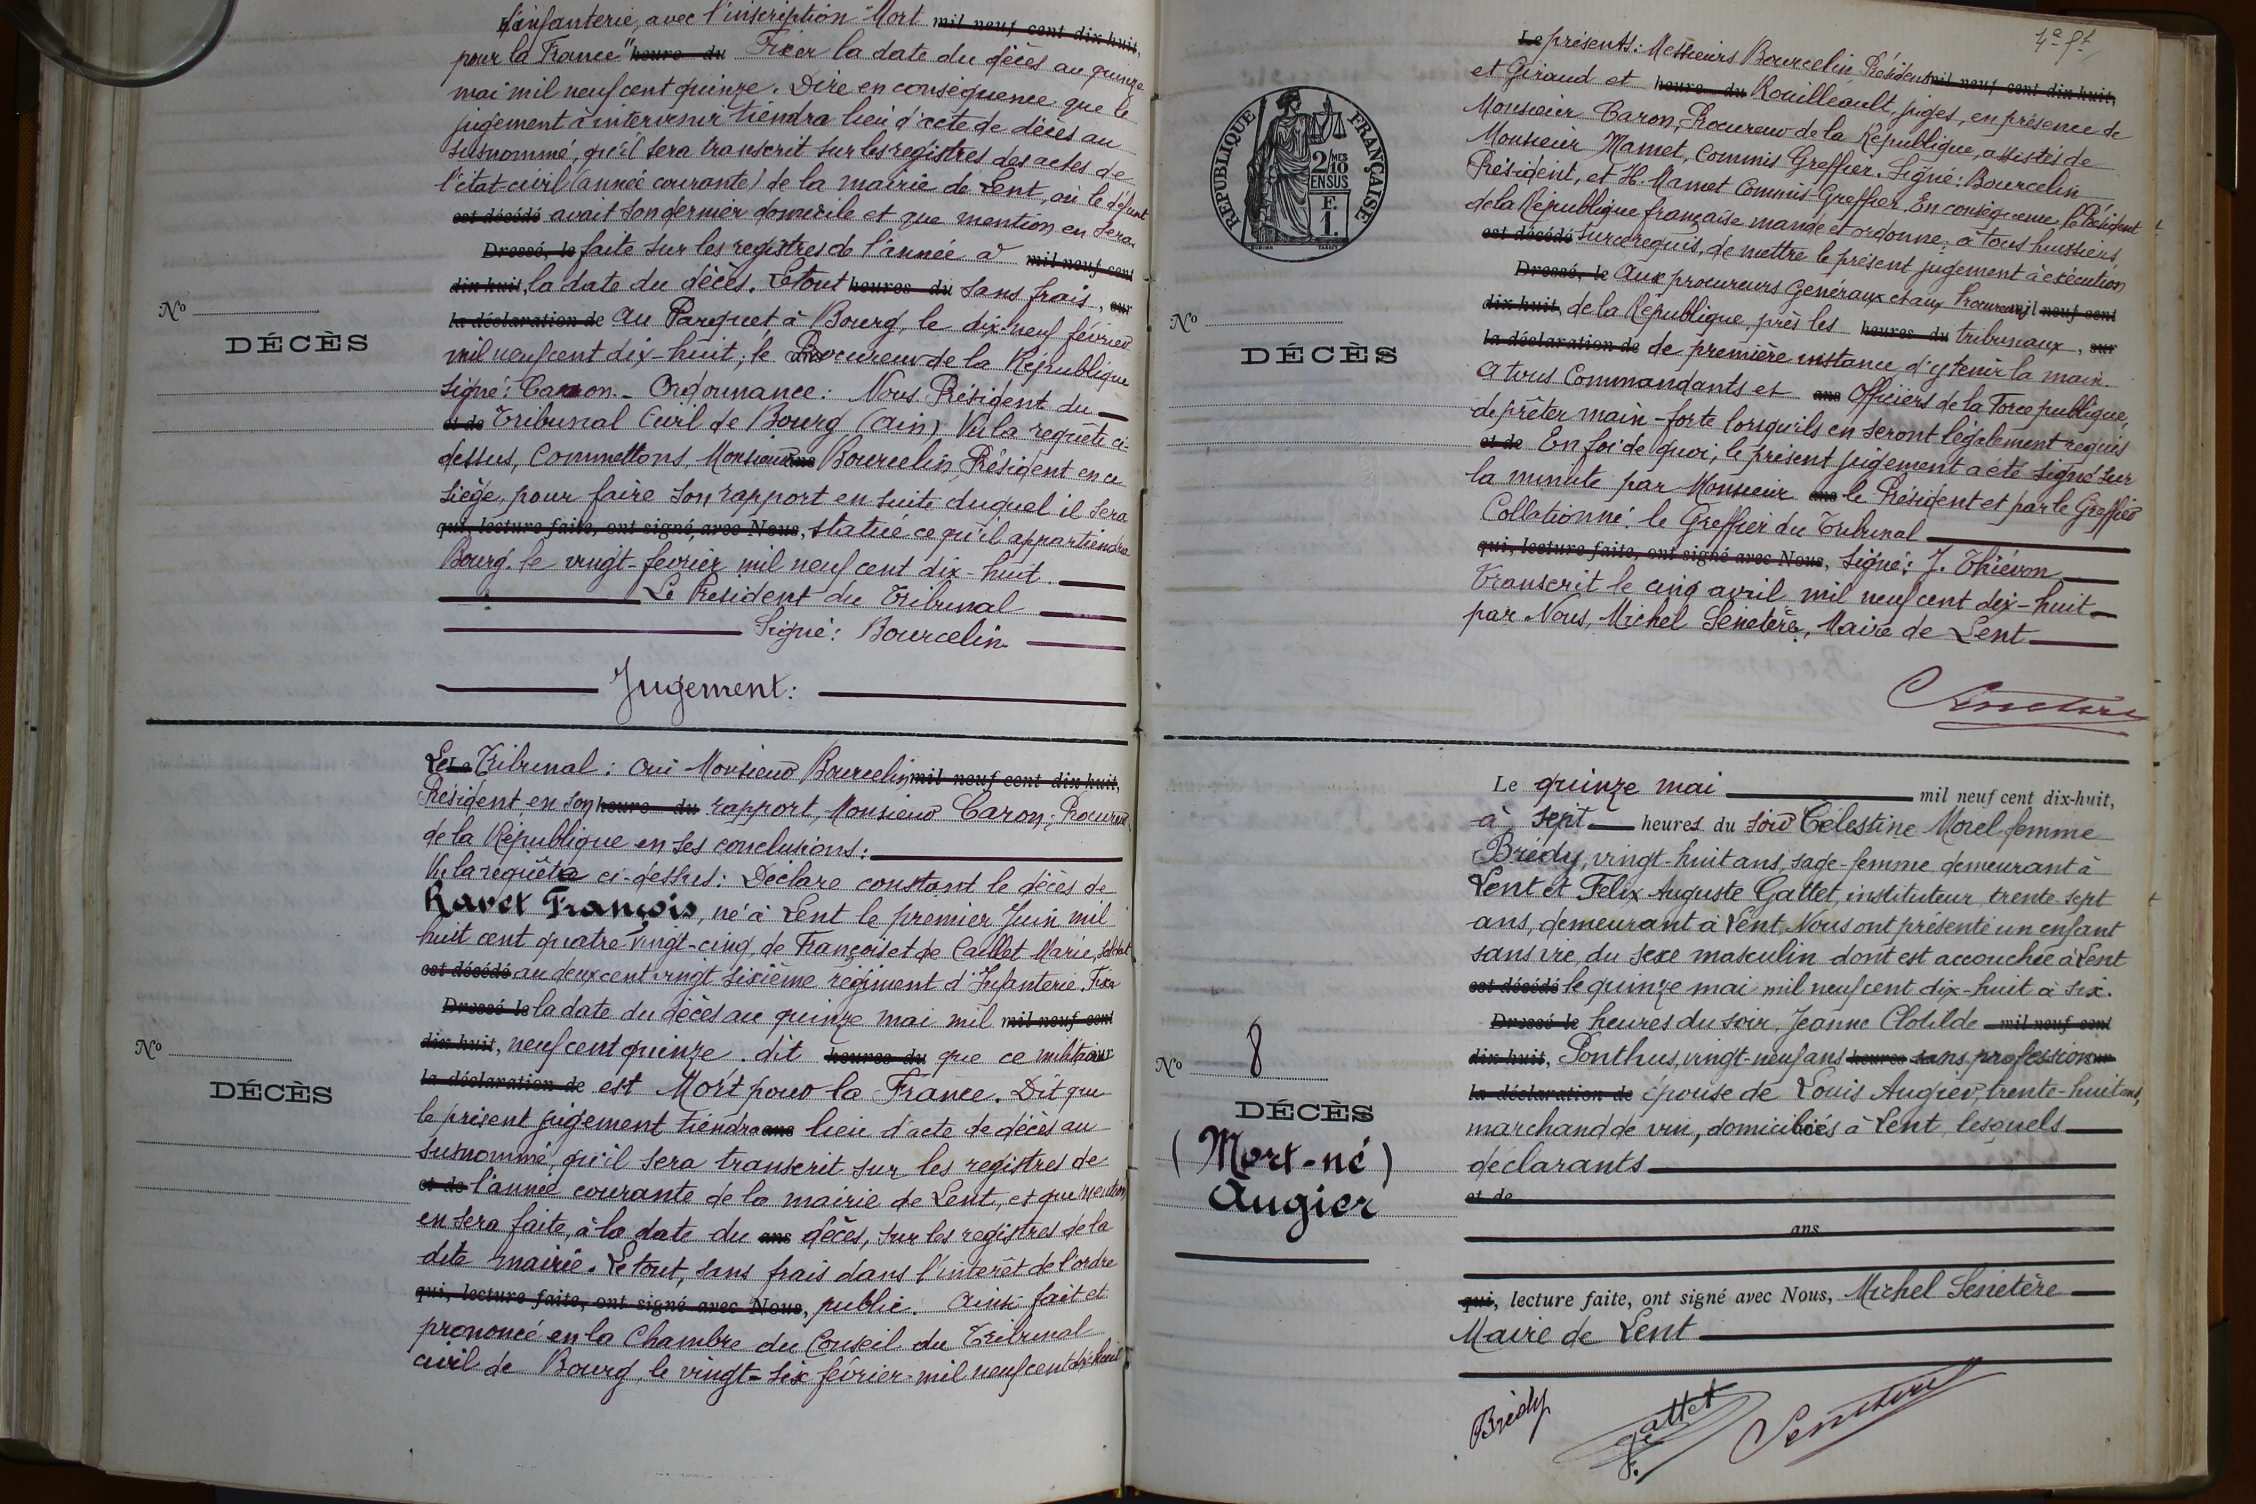 d'infanterie, avec l'inscription "Mort mil neuf cent dix-huit,
pour la France" heure du Fixer la date du décès au quinze
mai mil neuf cent quinze. Dire en conséquence que le
jugement à intervenir tiendra lieu d'acte de décès au
susnommé, qu'il sera transcrit sur les registres des actes de
l'état-civil (année courante) de la mairie de Lent, où le défunt
est décédé avait son dernier domicile et que mention en sera
Dressé, le faite sur les registres de l'année à mil neuf cent
dix-huit, la date du décès. Le tout heures du sans frais, sur
la déclaration de Au Parquet à Bourg, le dix-neuf février
mil neuf cent dix-huit; le Procureur de la République
signé: Caron. Ordonnance: Nous Président du
et de Tribunal Civil de Bourg (Ain) Vu la requête ci-
dessus, Commettons Monsieur ans Bourcelin, Président en ce
siège, pour faire son rapport en suite duquel il sera
qui, lecture faite, ont signé, avec Nous, statué ce qu'il appartiendra
Bourg. le vingt-février mil neuf cent dix-huit
Le Président du Tribunal
Signé: Bourcelin
Jugement:
No
DÉCÈS
Le Le Tribunal: oui Monsieur Bourcelin mil neuf cent dix-huit,
Président en son heure du rapport, Monsieur Caron, Procureur
de la République en ses conclusions:
Vu la requête ci-dessus: Déclare constant le décès de
Ravet François, né à Lent le premier Juin mil
huit cent quatre vingt-cinq, de François et de Caillet Marie, soldat
est décédé au deux cent vingt sixième régiment d'Infanterie. Fixe
Dressé le la date du décès au quinze mai mil mil neuf cent
dix-huit, neuf cent quinze. dit heures du que ce militaire sur
la déclaration de est Mort pour la France. Dit que
le présent jugement tiendra ans lieu d'acte de décès au
susnommé, qu'il sera transcrit sur les registres de
et de l'année courante de la mairie de Lent, et que mention
en sera faite, à la date du ans décès, sur les registres de la
dite mairie. Le tout, sans frais dans l'intérêt de l'ordre
qui, lecture faite, ont signé avec Nous, public. Ainsi fait et
prononcé en la Chambre du Conseil du Tribunal
civil de Bourg, le vingt-six février mil neuf cent dix huit
No
DÉCÈS
Le présents: Messieurs Bourcelin, Président mil neuf cent dix-huit,
et Giraud et heure du Rouilleault, juges, en présence de
Monsieur Caron, Procureur de la République, assistés de
Monsieur Mamet, Commis Greffier. Signé: Bourcelin
Président, et H. Mamet Commis-Greffier. En conséquence, le Président
de la République française mande et ordonne, à tous huissiers
est décédé sur ce requis, de mettre le présent jugement à exécution
Dressé, le Aux procureurs Généraux et aux Procureurs mil neuf cent
dix-huit, de la République près les heures du tribunaux, sur
la déclaration de de première instance d'y tenir la main.
A tous Commandants et ans Officiers de la Force publique,
de prêter main-forte lorsqu'ils en seront légalement requis
et de En foi de quoi, le présent jugement a été signé sur
la minute par Monsieur ans le Président et par le Greffier
Collationné: le Greffier du Tribunal
qui, lecture faite, ont signé avec Nous, Signé: J. Thiévon
Transcrit le cinq avril mil neuf cent dix-huit
par Nous, Michel Senetère, Maire de Lent
Senetère
RÉPUBLIQUE FRANÇAISE
2/10 MES
EN SUS
F.
1.
No
DÉCÈS
Le quinze mai mil neuf cent dix-huit,
à sept heures du soir Célestine Morel femme
Brédy, vingt-huit ans, sage-femme demeurant à
Lent et Felix Auguste Gattet, instituteur, trente-sept
ans, demeurant à Lent, Nous ont présenté un enfant
sans vie, du sexe masculin dont est accouchée à Lent
est décédé le quinze mai mil neuf cent dix-huit à six
Dressé le heures du soir, Jeanne Clotilde mil neuf cent
dix-huit, Ponthus, vingt-neuf ans heures sans profession sur
la déclaration de épouse de Louis Augier, trente-huit ans,
marchand de vin, domiciliés à Lent, lesquels
déclarants
et de
ans
qui, lecture faite, ont signé avec Nous, Michel Senetère
Maire de Lent
Brédy
F. Gattet
Senetère
No 8
DÉCÈS
(Mort-né)
Augier